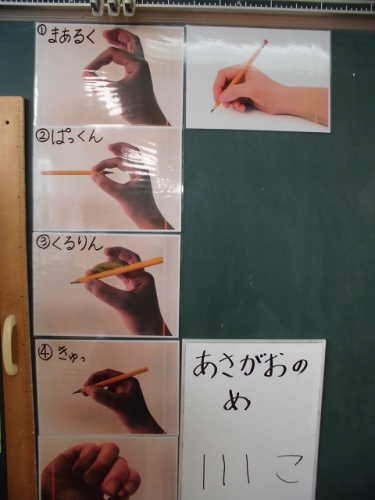 ①まあるく
②ぱっくん
③くるりん
④きゅっ
あさがおの
め
| | | こ